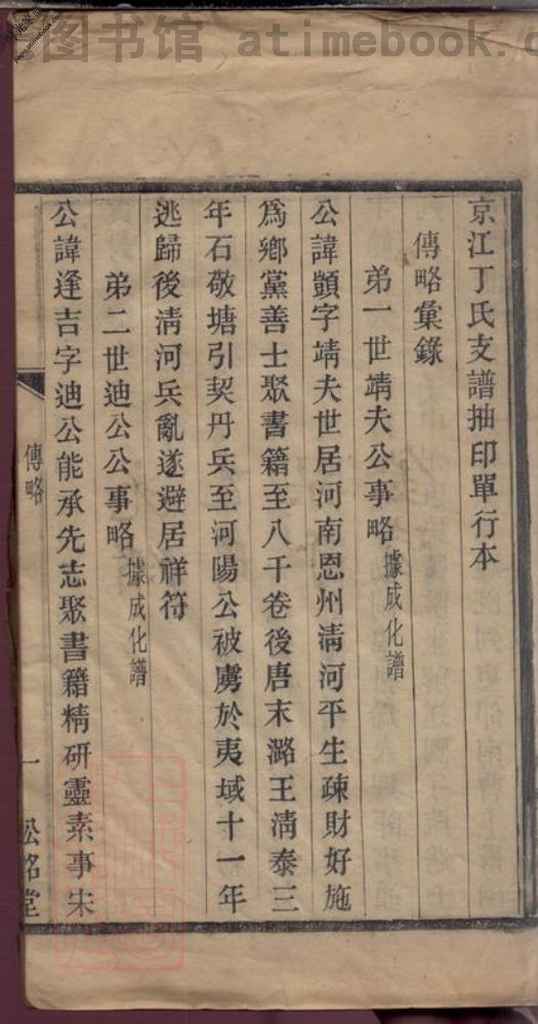 图书馆 atimebook.c
京江丁氏支譜抽印單行本
傳略彙錄
弟一世靖夫公事略據成化譜
公諱顗字靖夫世居河南恩州淸河平生疎財好施
爲鄉黨善士聚書籍至八千卷後唐末潞王淸泰三
年石敬塘引契丹兵至河陽公被虜於夷域十一年
逃歸後淸河兵亂遂避居祥符
弟二世迪公公事略據成化譜
公諱逢吉字迪公能承先志聚書籍精研靈素事宋
傳略
一
松銘堂